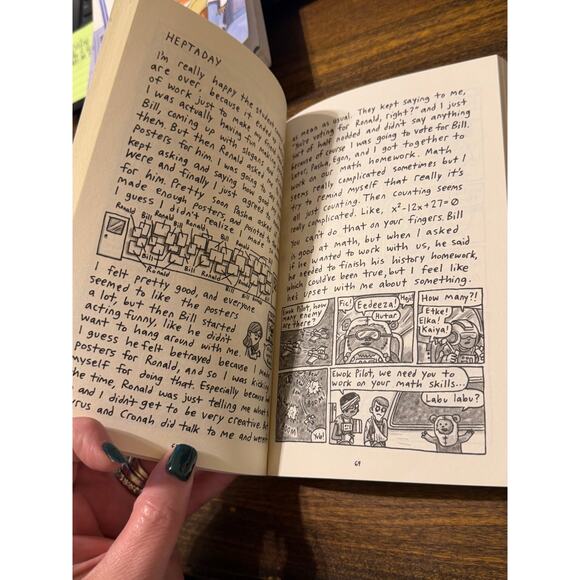 HEPTADAY
I'm really happy the student
are over, because it ended
of work just to make
I was actually having
Bill, coming up with slogans
them. But then Ronald asked
posters for him. I was going
kept asking and saying how good
were and finally I just agreed
for him. Pretty soon Pasha
made enough posters, and pointed
I guess I didn't realize I made
Ronald Bill Ronald Bill Ronald Bill Ronald
Ronald Bill Ronald Bill
I felt pretty good, and everyone
seemed to like the posters
a lot, but then Bill started
acting funny, like he didn't
want to hang around with me.
I guess he felt betrayed because I
posters for Ronald, and so I was kicking
myself for doing that. Especially because
the time, Ronald was just telling me what
and I didn't get to be very creative.
and Cronah did talk to me and
as mean as usual. They kept saying to me,
"You're voting for Ronald, right?" and I just
sort of half nodded and didn't say anything
because of course I was going to vote for Bill.
Later, Pasha, Egon, and I got together to
work on our math homework. Math
seems really complicated sometimes but I
try to remind myself that really it's
all just counting. Then counting seems
really complicated. Like, x²-12x+27=0
You can't do that on your fingers. Bill
is good at math, but when I asked
if he wanted to work with us, he said
he needed to finish his history homework,
which could've been true, but I feel like
he's upset with me about something.
Ewok Pilot, how
many enemy
are there?
Fic!
Eedeeza!
Hutar
How many?!
Etke!
Elka!
Kaiya!
Yub!
Ewok Pilot, we need you to
work on your math skills...
Labu labu?
69